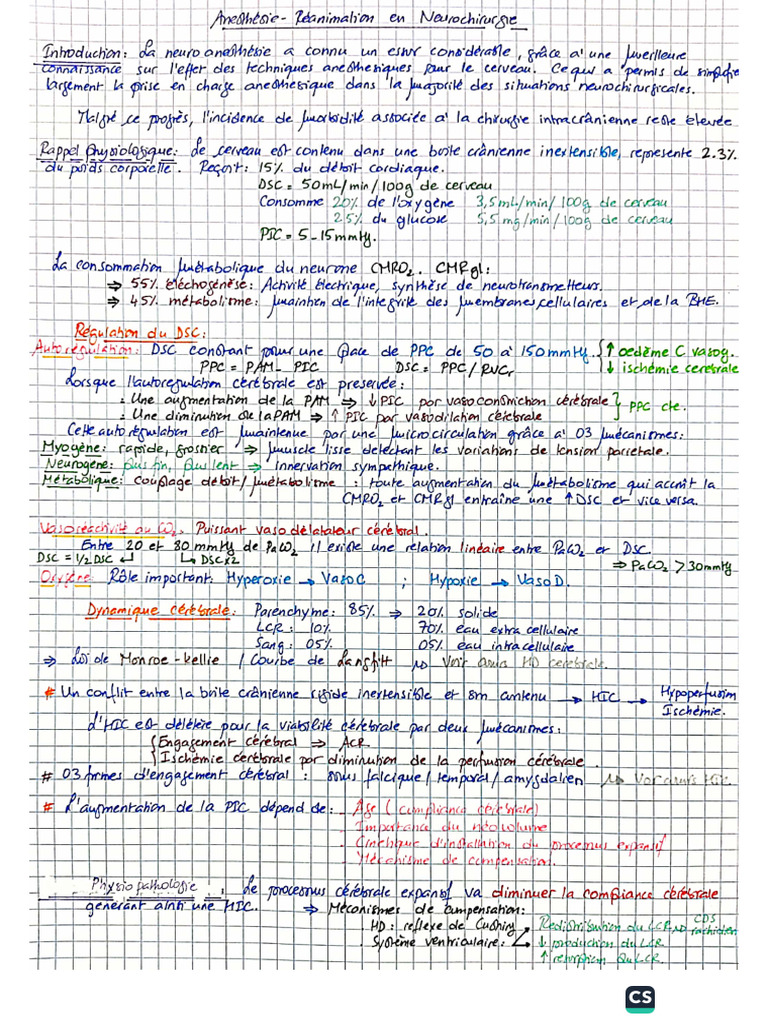 Anesthésie - Réanimation en Neurochirurgie
Introduction: La neuroanesthésie a connu un essor considérable, grâce à une meilleure
connaissance sur l'effet des techniques anesthésiques pour le cerveau. Ce qui a permis de simplifie
largement la prise en charge anesthésique dans la majorité des situations neurochirurgicales.
Malgré ce progrès, l'incidence de morbidité associée à la chirurgie intracrânienne reste élevée
Rappel physiologique: Le cerveau est contenu dans une boite crânienne inextensible, représente 2.3%
du poids corporelle. Reçoit: 15% du débit cardiaque.
DSC = 50mL/min/100g de cerveau
Consomme 20% de l'oxygène 3,5mL/min/100g de cerveau
25% du glucose 5,5mg/min/100g de cerveau
PIC = 5-15mmHg.
La consommation métabolique du neurone CMRO2. CMRgl:
→ 55% éléchogénèse: Activité électrique, synthèse de neurotransmetteurs.
→ 45% métabolisme: maintien de l'intégrité des membranes cellulaires et de la BHE.
Régulation du DSC:
Autorégulation: DSC constant pour une place de PPC de 50 à 150mmHg { ↑ oedème C vasog.
PPC = PAM - PIC DSC = PPC/RVCr ↓ ischémie cérébrale
Lorsque l'autorégulation cérébrale est préservée:
: Une augmentation de la PAM → ↓ PIC par vasoconstriction cérébrale } PPC cte.
: Une diminution de la PAM → ↑ PIC par vasodilation cérébrale
Cette autorégulation est maintenue par une microcirculation grâce à 03 mécanismes:
Myogène: rapide, grossier → muscle lisse détectant les variations de tension pariétale.
Neurogène: plus fin, plus lent → innervation sympathique.
Métabolique: couplage débit/métabolisme : toute augmentation du métabolisme qui accroit la
CMRO2 et CMRgl entraîne une ↑ DSC et vice versa.
Vasoréactivité au CO2. Puissant vasodélatateur cérébral.
Entre 20 et 80mmHg de PaCO2 il existe une relation linéaire entre PaCO2 et DSC.
DSC = 1/2 DSC ↲ ↳ DSCx2 ⇒ PaCO2 > 30mmHg
Oxygène: Rôle important: Hyperoxie → VasoC ; Hypoxie → Vaso D.
Dynamique cérébrale: Parenchyme: 85% → 20% solide
LCR: 10% 70% eau extracellulaire
Sang: 05% 05% eau intracellulaire
⇒ Loi de Monroe-kellie / Courbe de Langfitt Voir cours HD cérébrale.
# Un conflit entre la boite crânienne rigide inextensible et son contenu → HIC → Hypoperfusion
Ischémie.
l'HIC est délétère pour la viabilité cérébrale par deux mécanismes:
{ Engagement cérébral ⇒ ACR
Ischémie cérébrale par diminution de la perfusion cérébrale.
# 03 formes d'engagement cérébral : sous falcique / temporal / amygdalien Voir cours HIC.
# L'augmentation de la PIC dépend de: . Age (compliance cérébrale)
. Importance du néovolume
. Cinétique d'installation du processus expansif
. Mécanisme de compensation.
Physiopathologie : Le processus cérébrale expansif va diminuer la compliance cérébrale
générant ainsi une HIC. ⇒ Mécanismes de compensation:
HD: réflexe de Cushing Redistribution du LCR CDS rachidien
Système ventriculaire: ↓ production du LCR
↑ résorption du LCR
CS